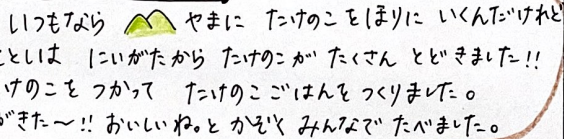 いつもなら やまに たけのこをほりに いくんだけれど
ことしは にいがたから たけのこが たくさん とどきました!!
けのこを つかって たけのこごはんを つくりました。
ができた〜!! おいしいね。と かぞく みんなで たべました。